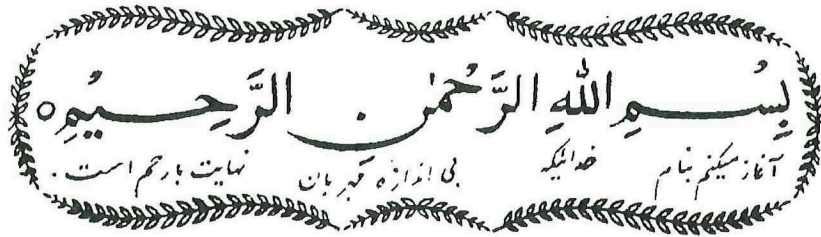 بِسْمِ اللهِ الرَّحْمٰنِ الرَّحِيْمِ ○
آغاز میکنم بنام خدائیکه بی اندازه مهربان نهایت بارحم است .